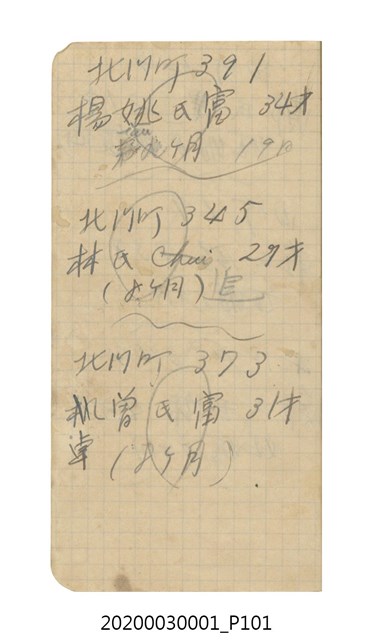 北川町 391
楊姚氏富 34才
ケ月 19日
北川町 345
林氏Chui 29才
(8ケ月) 追
北川町 373
曽氏富 31才
卓 (8ケ月)
20200030001_P101